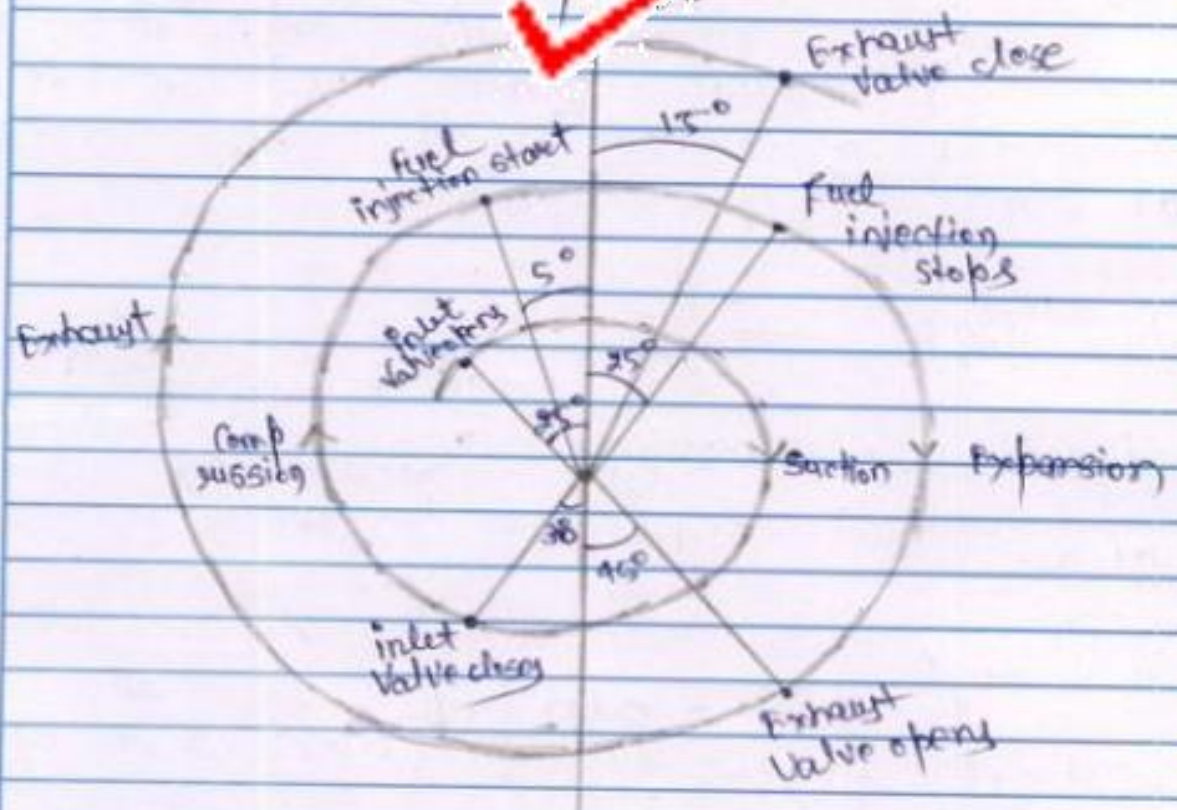 Exhaust
Valve close
15°
Fuel
injection start
Fuel
injection
stops
5°
inlet
Valve opens
25°
25°
Exhaust
Comp
ression
Suction
Expansion
45°
inlet
Valve closes
Exhaust
Valve opens